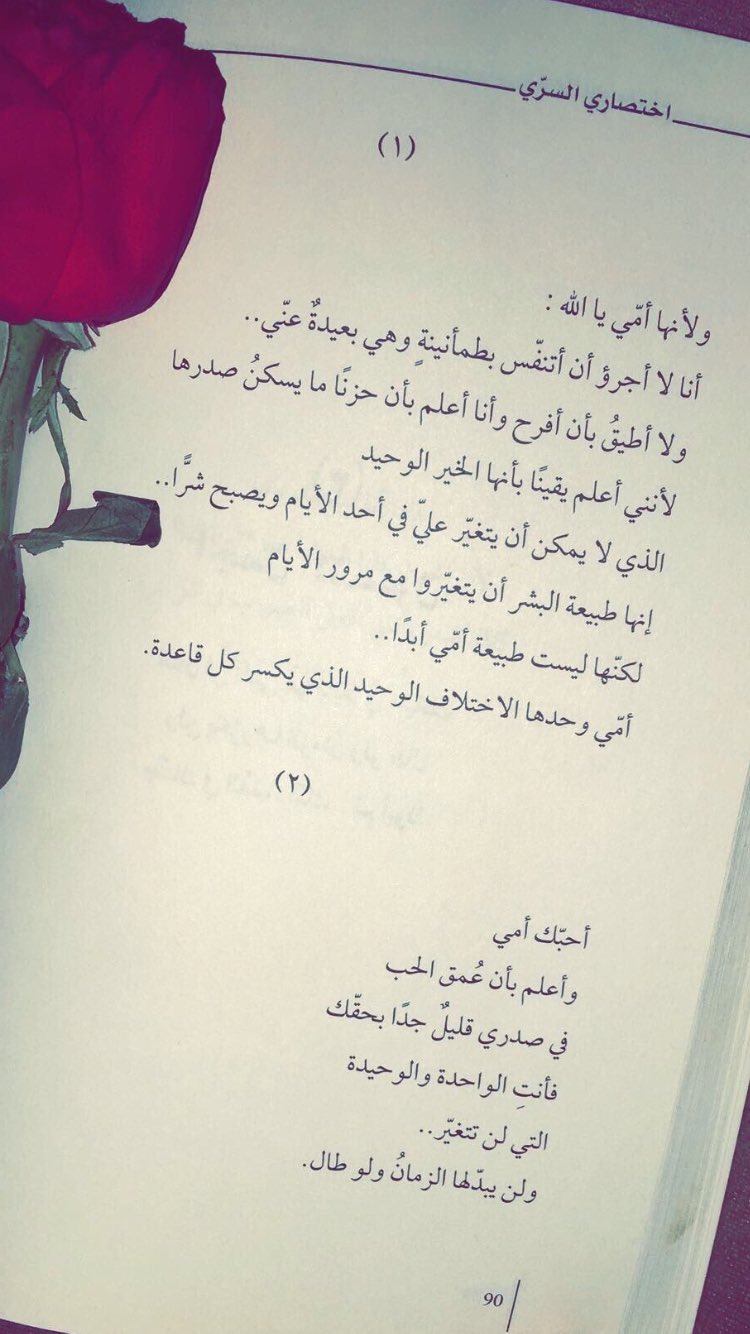 اختصاري السرّي
(١)
ولأنها أمّي يا الله :
أنا لا أجرؤ أن أتنفّس بطمأنينةٍ وهي بعيدةٌ عنّي..
ولا أطيقُ بأن أفرح وأنا أعلم بأن حزنًا ما يسكنُ صدرها
لأنني أعلم يقينًا بأنها الخير الوحيد
الذي لا يمكن أن يتغيّر عليّ في أحد الأيام ويصبح شرًّا..
إنها طبيعة البشر أن يتغيّروا مع مرور الأيام
لكنّها ليست طبيعة أمّي أبدًا..
أمّي وحدها الاختلاف الوحيد الذي يكسر كل قاعدة.
(٢)
أحبّك أمي
وأعلم بأن عُمق الحب
في صدري قليلٌ جدًا بحقّك
فأنتِ الواحدة والوحيدة
التي لن تتغيّر..
ولن يبدّلها الزمانُ ولو طال.
90